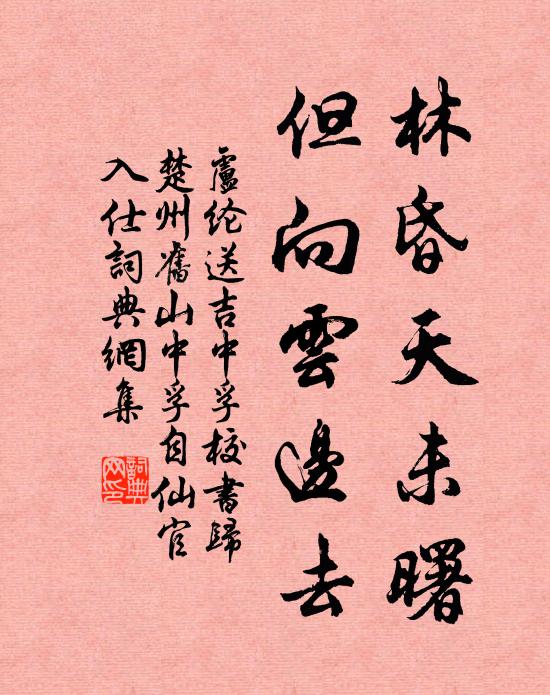 林昏天未曙
但向雲邊去
盧纶送吉中孚校書歸
楚州舊山中孚自仙官
入仕詞典網集
詞典
网印